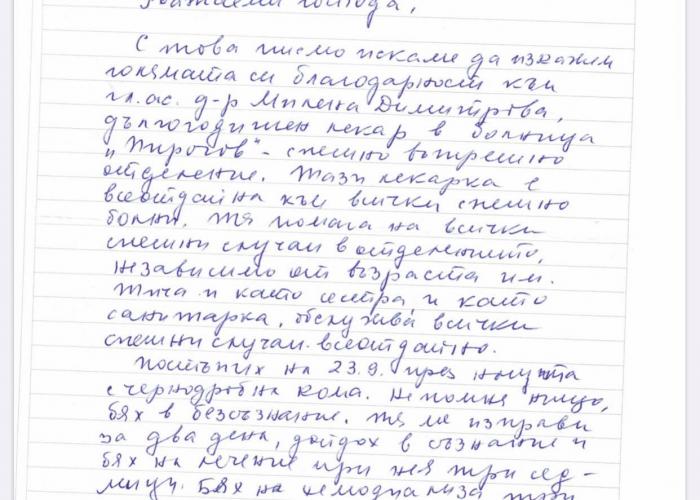 Уважаеми господа,
С това писмо искаме да изкажем
голямата си благодарност към
гл. ас. д-р Милена Димитрова,
дългогодишен лекар в болница
„Пирогов"- спешно вътрешно
отделение. Тази лекарка е
всеотдайна към всички спешно
болни. Тя помага на всички
спешни случаи в отделението,
независимо от възрастта им.
Тича и като сестра и като
санитарка, обслужва всички
спешни случаи всеотдайно.
Постъпих на 23.9. през нощта
с чернодробна кома. Не помня нищо,
бях в безсъзнание. Тя ме изправи
за два дена, дойдох в съзнание и
бях на лечение при нея три сед-
мици. Бях на хемодиализа три